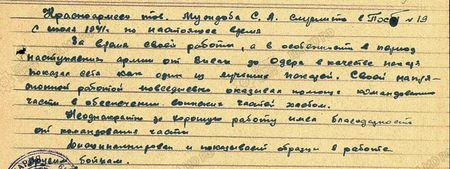 Красноармеец тов. Мундоба С. А. служит в № 19
с июля 1941г. по настоящее время
За время своей работы, а в особенности в период
наступления армии от Вислы до Одера в качестве пекаря
показал себя как один из лучших пекарей. Своей
работой повседневно оказывал помощь командованию
части в обеспечении воинских частей хлебом.
Неоднократно за хорошую работу имел благодарность
от командования части
Дисциплинирован и показывает образцы в работе
другим бойцам.